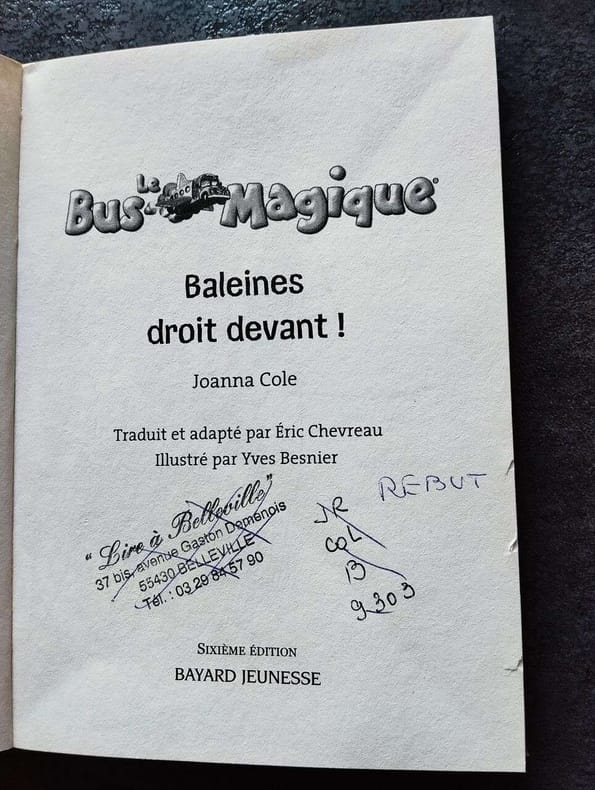 Le
Bus Magique®
Baleines
droit devant !
Joanna Cole
Traduit et adapté par Éric Chevreau
Illustré par Yves Besnier
REBUT
" Lire à Belleville "
37 bis, avenue Gaston Daménois
55430 BELLEVILLE
Tél. : 03 29 84 57 90
JR
COL
13
9303
SIXIÈME ÉDITION
BAYARD JEUNESSE